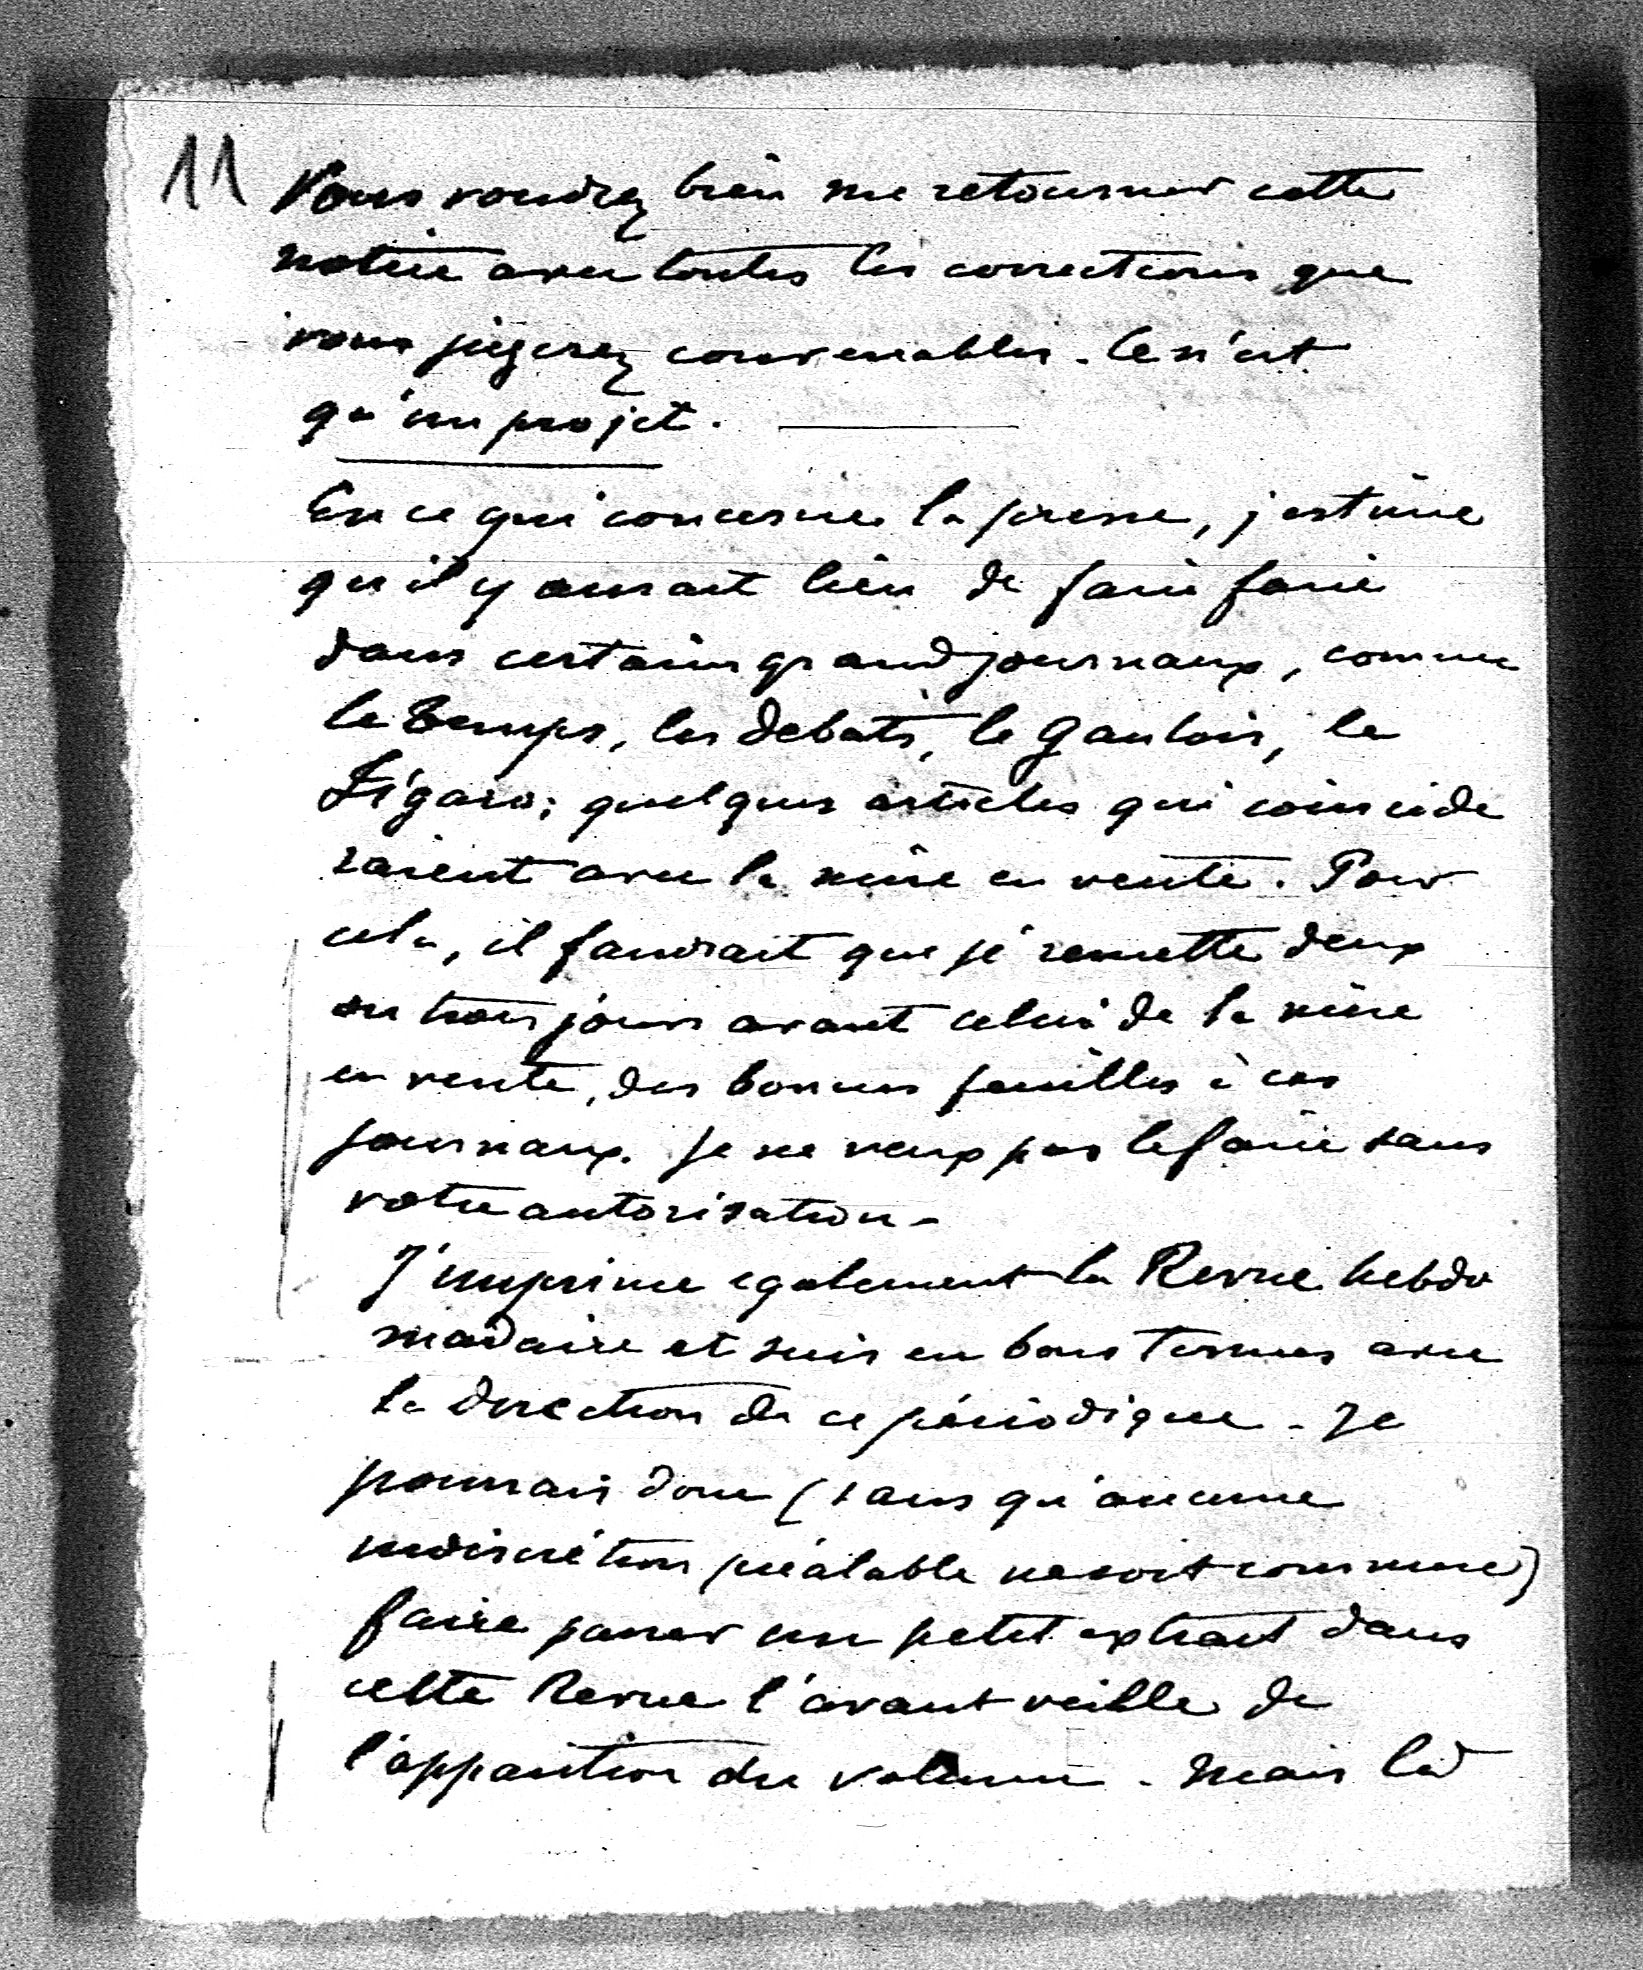 11
Vous voudrez bien me retourner cette
notice avec toutes les corrections que
vous jugerez convenables. Ce n'est
qu'un projet.
En ce qui concerne la presse, j'estime
qu'il y aurait lieu de faire faire
dans certains grands journaux, comme
le Temps, les Debats, le Gaulois, le
Figaro; quelques articles qui coincide
raient avec la mise en vente. Pour
cela, il faudrait que je remette deux
ou trois jours avant celui de la mise
en vente, des bonnes feuilles à ces
journaux. Je ne veux pas le faire sans
votre autorisation.
J'imprime egalement la Revue hebdo
madaire et suis en bons termes avec
la direction de ce périodique. Je
pourrais donc (sans qu'aucune
indiscrétion préalable ne soit commise)
faire passer un petit extrait dans
cette Revue l'avant veille de
l'apparition du volume. Mais là